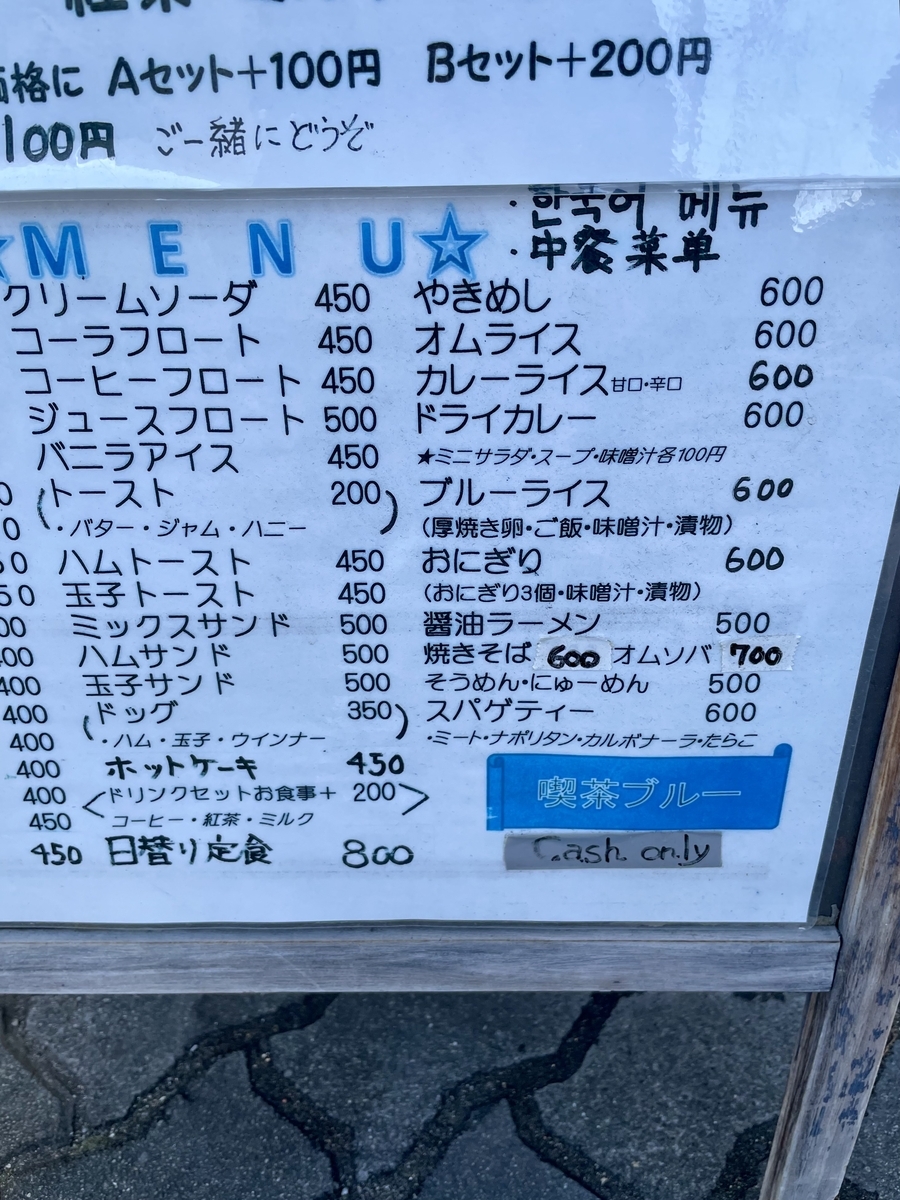 価格に Aセット+100円 Bセット+200円
100円 ご一緒にどうぞ
☆MENU☆
・한국어 메뉴
・中餐菜单
クリームソーダ 450 やきめし 600
コーラフロート 450 オムライス 600
コーヒーフロート 450 カレーライス甘口・辛口 600
ジュースフロート 500 ドライカレー 600
バニラアイス 450 ★ミニサラダ・スープ・味噌汁各100円
0 (トースト 200) ブルーライス 600
0 ・バター・ジャム・ハニー (厚焼き卵・ご飯・味噌汁・漬物)
50 ハムトースト 450 おにぎり 600
50 玉子トースト 450 (おにぎり3個・味噌汁・漬物)
00 ミックスサンド 500 醤油ラーメン 500
400 ハムサンド 500 焼きそば 600 オムソバ 700
400 玉子サンド 500 そうめん・にゅーめん 500
400 (ドッグ 350) スパゲティー 600
400 ・ハム・玉子・ウインナー ・ミート・ナポリタン・カルボナーラ・たらこ
400 ホットケーキ 450
400 <ドリンクセットお食事+ 200> 喫茶ブルー
450 コーヒー・紅茶・ミルク
450 日替り定食 800 Cash only